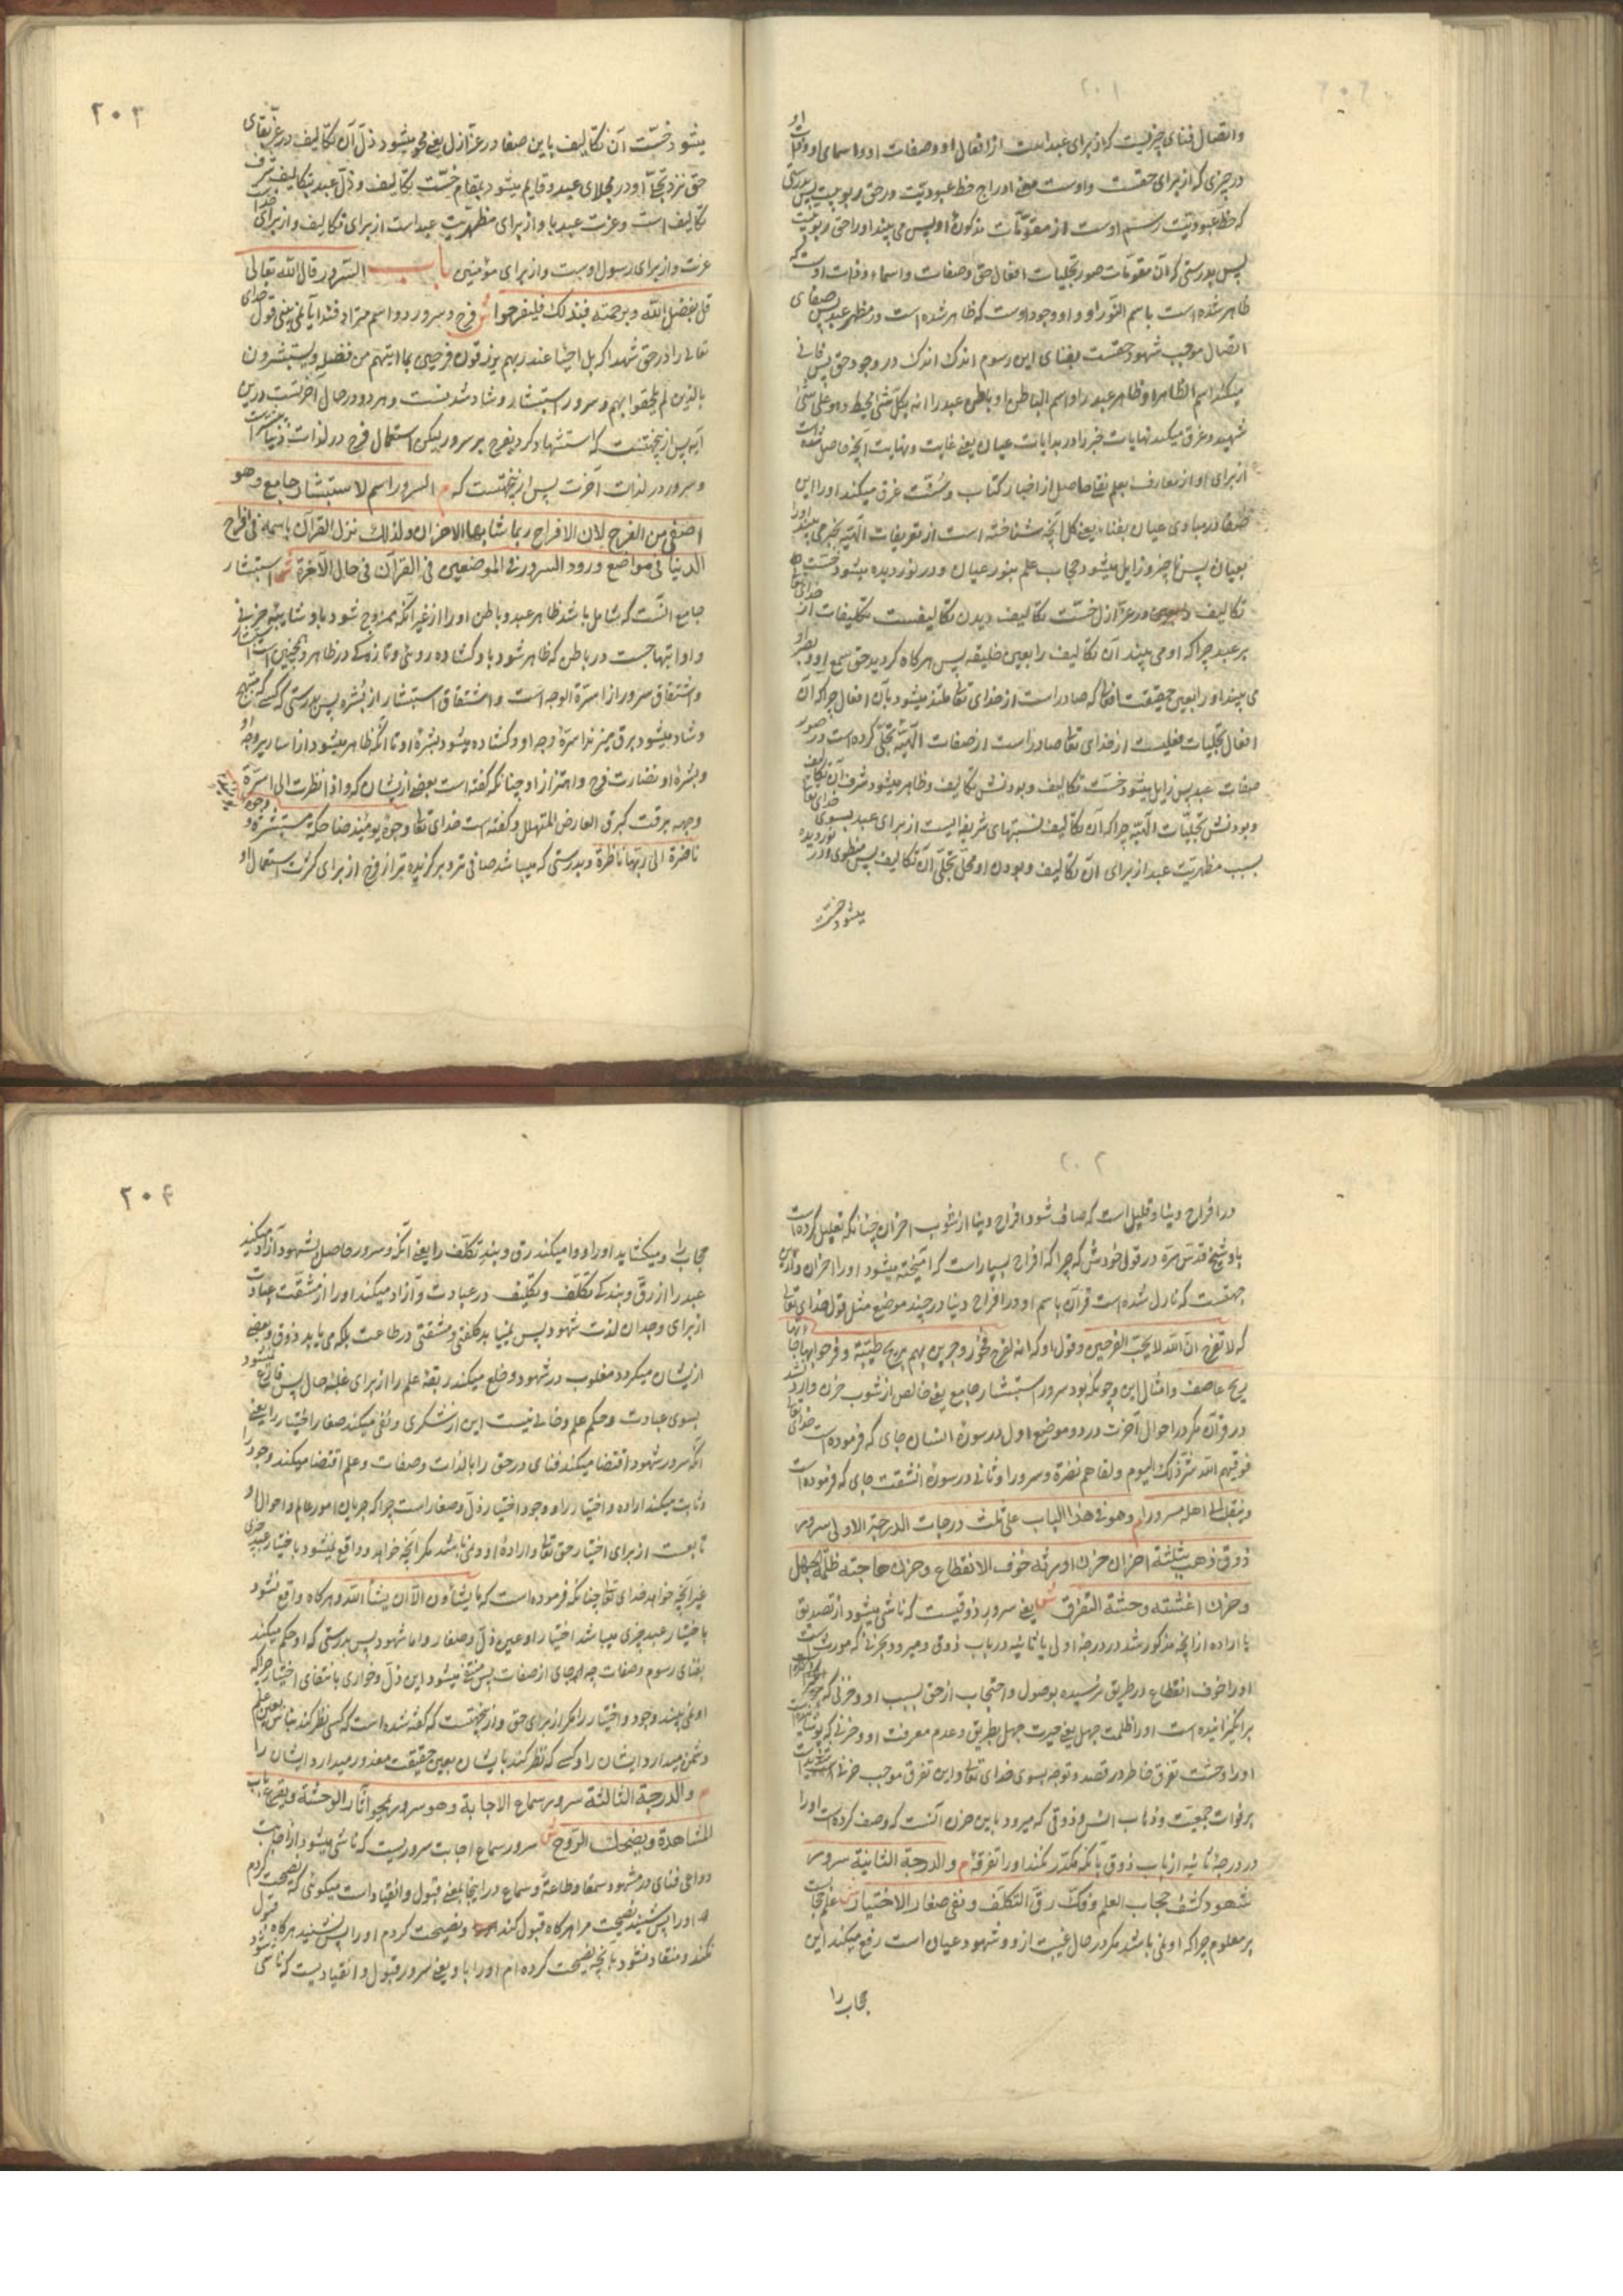 ۲۰۱
واتصال فنای چیزیست که از برای عبد است از افعال او وصفات او واسمای او وذات او
در چیزی که از برای حقست واوست یعنی اوراج حظ عبودیت در حق ربوبیت پس بدرستی
که حظ عبودیت رسم اوست از مقومات مذکورهٔ او پس می بیند اورا حق ربوبیت
پس بدرستی که آن مقومات صور تجلیات افعال حق وصفات واسماء وذات اوست که
ظاهر شده است باسم النور او واو وجود اوست که ظاهر شده است در مظهر عبد پس صفای
اتصال موجب شهود حقست بفنای این رسوم اندک اندک در وجود حق پس فانی
میکند اسم الظاهر او ظاهر عبد را واسم الباطن او باطن عبد را انه بکل شی محیط وهو علی کل شی
شهید وغرق میکند نهایات خبر را در بدایات عیان یعنی غایت ونهایت آنچه حاصل شده است
از برای او از تعارف بعلم نقلی حاصل از اخبار کتاب وسنت غرق میکند اورا این
صفا در مبادی عیان بفناء یعنی کل آنچه شناخته است از تعریفات الهیه بخبر می بیند اورا
بعیان پس ناچیز وزایل میشود حجاب علم بنور عیان ودر نور دیده میشود خست
تکالیف در عز ازل خست تکالیف دیدن تکالیفست تکلیفات از خدای تعالی
بر عبد چرا که او می بیند آن تکالیف را بعین خلیقه پس هرگاه گردید حق سمع او وبصر او
می بیند اورا بعین حقیقت افعالی که صادر است از خدای تعالی متلذذ میشود بآن افعال چرا که آن
افعال تجلیات فعلیست از خدای تعالی صادر است از صفات الهیه تجلی کرده است در صور
صفات عبد پس زایل میشود خست تکالیف وبودنش تکالیف وظاهر میشود شرف آن تکالیف
وبودنش تجلیات الهیه چرا که آن تکالیف نسبتهای شریفه الیست از برای عبد بسوی خدای تعالی
بسبب مظهریت عبد از برای آن تکالیف وبودن او محل تجلی آن تکالیف پس منطوی ودر نوردیده
میشود خست
۲۰۳
میشود خست آن تکالیف باین صفا در عز ازل یعنی محو میشود ذل آن تکالیف در عز بقای
حق نزد تجلی او در مجلای عبد وقایم میشود بمقام خست تکالیف وذل عبد بتکالیف شرف
تکالیف است وعزت عبد باو از برای مظهریت عبد است از برای تکالیف واز برای خدا است
عزت واز برای رسول اوست واز برای مؤمنین باب السرور قال الله تعالی
قل بفضل الله وبرحمته فبذلک فلیفرحوا ش فرح وسرور دو اسم مترادفند آیا نمی بینی قول خدای
تعالی را در حق شهدا که بل احیا عند ربهم یرزقون فرحین بما اتیهم من فضله ویستبشرون
بالذین لم یلحقوا بهم وسرور استبشار وشاد شدنست وهر دو در حال آخرتست درین
آیه پس از ینجهتست که استشهاد کرد بفرح بر سرور لیکن استعمال فرح در لذات دنیا بیشتر است
وسرور در لذات آخرت پس از ینجهتست که م السرور اسم لاستبشار جامع وهو
اصفی من الفرح لان الافراح ربما شابها الاحزان ولذلک نزل القرآن باسمه فی افراح
الدنیا فی مواضع وورود السرور فی الموضعین فی القرآن فی حال الآخرة ش استبشار
جامع آنست که شامل باشد ظاهر عبد وباطن اورا از غیر آنکه ممزوج شود باو شایبهٔ حزنی
واو ابتهاجست در باطن که ظاهر شود باو گشاده روئی وتازه کی در ظاهر وهمچنین است استبشار
واشتقاق سرور از اسرة الوجه است واشتقاق استبشار از بشره پس بدرستی کسی که مبتهج
وشاد میشود برق میزند اسرهٔ وجه او وگشاده میشود بشرهٔ او تا آنکه ظاهر میشود از اساریر وجه او
وبشرهٔ او نضارت فرح واهتزاز او چنانکه گفته است بعضی از یشان که واذا نظرت الی اسرة
وجهه برقت کبرق العارض المتهلل وگفته است خدای تعالی وجوه یومئذ ضاحکة مستبشرة ووجوه
ناضرة الی ربها ناظرة وبدرستی که میباشد صافی تر وبرگزیده تر از فرح از برای کثرت استعمال او
۲۰۲
در افراح دنیا وقلیل است که صاف شود افراح دنیا از شوب احزان چنانکه تعلیل کرده است
باو شیخ قدس سره در قول خودش که چرا که افراح بسیار است که آمیخته میشود اورا احزان واز ین
جهتست که نازل شده است قرآن باسم او در افراح دنیا در چند موضع مثل قول خدای تعالی
که لا تفرح ان الله لا یحب الفرحین وقول او که انه لفرح فخور وجرین بهم بریح طیبة وفرحوا بها جاءتها
ریح عاصف وامثال این وچونکه بود سرور استبشار جامع یعنی خالص از شوب حزن وارد نشد
در قرآن مگر در احوال آخرت در دو موضع اول در سورهٔ انسان جای که فرموده است خدای تعالی
فوقیهم الله شر ذلک الیوم ولقاهم نضرة وسرورا وثانی در سورهٔ انشقت جای که فرموده است
وینقلب الی اهله مسرورا م وهو فی هذا الباب علی ثلث درجات الدرجة الاولی سرور
ذوق ذهب بثلثة احزان حزن اورثه خوف الانقطاع وحزن هاجته ظلمة الجهل
وحزن اغشته وحشة التفرق ش یعنی سرور ذوقیست که ناشی میشود از تصدیق
با اراده از آنچه مذکور شد در درجهٔ اولی یا ثانیه در باب ذوق ومیبرد بحزنی که مورث است
اورا خوف انقطاع در طریق نرسیده بوصول واحتجاب از حق بسبب او وحزنی که
برانگیزانیده است اورا ظلمت جهل یعنی حیرت جهل بطریق وعدم معرفت او وحزنی که پوشانیده است
اورا وحشت تفرق خاطر در قصد وتوجه بسوی خدای تعالی واین تفرق موجب حزن است
بر فوات جمعیت وذهاب انس وذوقی که میرود باین حزن آنست که وصف کرده است اورا
در درجهٔ ثانیه از باب ذوق بآنکه مکدر نکند اورا تفرقه م والدرجة الثانیة سرور
شهود کشف حجاب العلم وفک رق التکلف ونفی صغار الاختیار ش علم حجاب است
بر معلوم چرا که او نمی باشد مگر در حال غیبت از و وشهود عیان است رفع میکند این
حجاب را
۲۰۴
حجاب را ومیگشاید اورا ووا میکند رق وبند تکلف را یعنی آنکه وسرور حاصل بشهود آزاد میکند
عبد را از رق وبندگی تکلف وتکلیف در عبادت وآزاد میکند اورا از مشقت عبادت
از برای وجدان لذت شهود پس نمییابد کلفتی ومشقتی در طاعت بلکه می یابد ذوق وبعضی
از یشان میگردد مغلوب در شهود وخلع میکند ربقهٔ علم را از برای غلبهٔ حال پس فارغ نمیشود
بسوی عبادت وحکم علم وخالی نیست این از سکری ونفی میکند صغار اختیار را یعنی
آنکه سرور شهود اقتضا میکند فنای در حق را بالذات وصفات وعلم اقتضا میکند وجود را
وثابت میکند اراده واختیار را ووجود اختیار ذل وصغار است چرا که جریان امور عالم واحوال او
تابعست از برای اختیار حق تعالی وارادهٔ او ونمی باشد مگر آنچه خواهد وواقع نمیشود باختیار عبد چیزی
غیر آنچه خواهد خدای تعالی چنانکه فرموده است که ما یشاؤن الا ان یشاء الله وهرگاه واقع نشود
باختیار عبد چیزی میباشد اختیار او عین ذل وصغار واما شهود پس بدرستی که او حکم میکند
بفنای رسوم وصفات چه جای از صفات پس منتفی میشود این ذل وخواری بانتفای اختیار چرا که
او نمی بیند وجود واختیار را مگر از برای حق واز ینجهتست که گفته شده است که کسی نظر کند بناس بعین علم
دشمن میدارد ایشان را وکسی که نظر کند بایشان بعین حقیقت معذور میدارد ایشان را
م والدرجة الثالثة سرور سماع الاجابة وهو سرور یمحو آثار الوحشة ویقرع باب
المشاهدة ویضحک الروح ش سرور سماع اجابت سروریست که ناشی میشود از اجابت
دواعی فنای در مشهود سمعا وطاعة وسماع در اینجا بمعنی قبول وانقیاد است میگوئی که نصیحت کردم
اورا پس شنید نصیحت مرا هرگاه قبول کند ونصیحت کردم اورا پس نشنید هرگاه قبول
نکند ومنقاد نشود بآنچه نصیحت کرده ام اورا باو یعنی سرور قبول وانقیادیست که ناشی شود